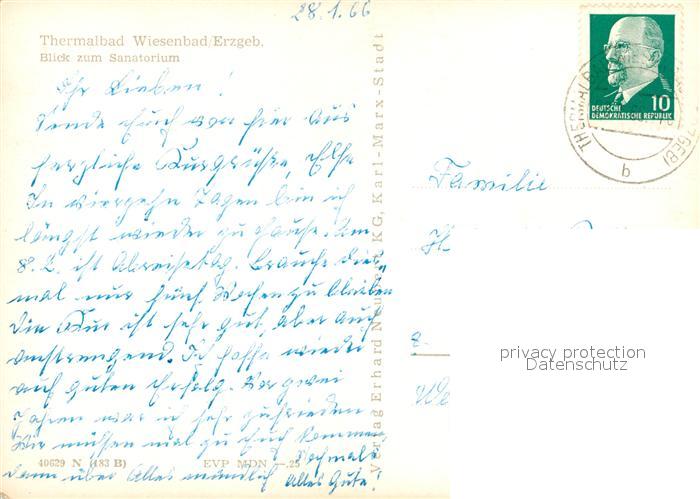 28.1.66
Thermalbad Wiesenbad/Erzgeb.
Blick zum Sanatorium
Ihr Lieben!
Sende Euch von hier aus
herzliche Kurgrüße, Elfe
In vierzehn Tagen bin ich
längst wieder zu Hause. Am
8. 2. ist Abreisetag. Brauche dies-
mal nur fünf Wochen zu bleiben
Die Kur ist sehr gut, aber auch
anstrengend. Ich hoffe wieder
auf guten Erfolg. Vor zwei
Jahren war ich sehr zufrieden
Wir müssen mal zu Euch kommen,
Nochmals
dann über Alles mündlich alles Gute!
40629 N (183 B) EVP MDN -.25
Verlag Erhard Neubert KG, Karl-Marx-Stadt
10
DEUTSCHE
DEMOKRATISCHE REPUBLIK
THERMALBAD
b
Familie
privacy protection
Datenschutz